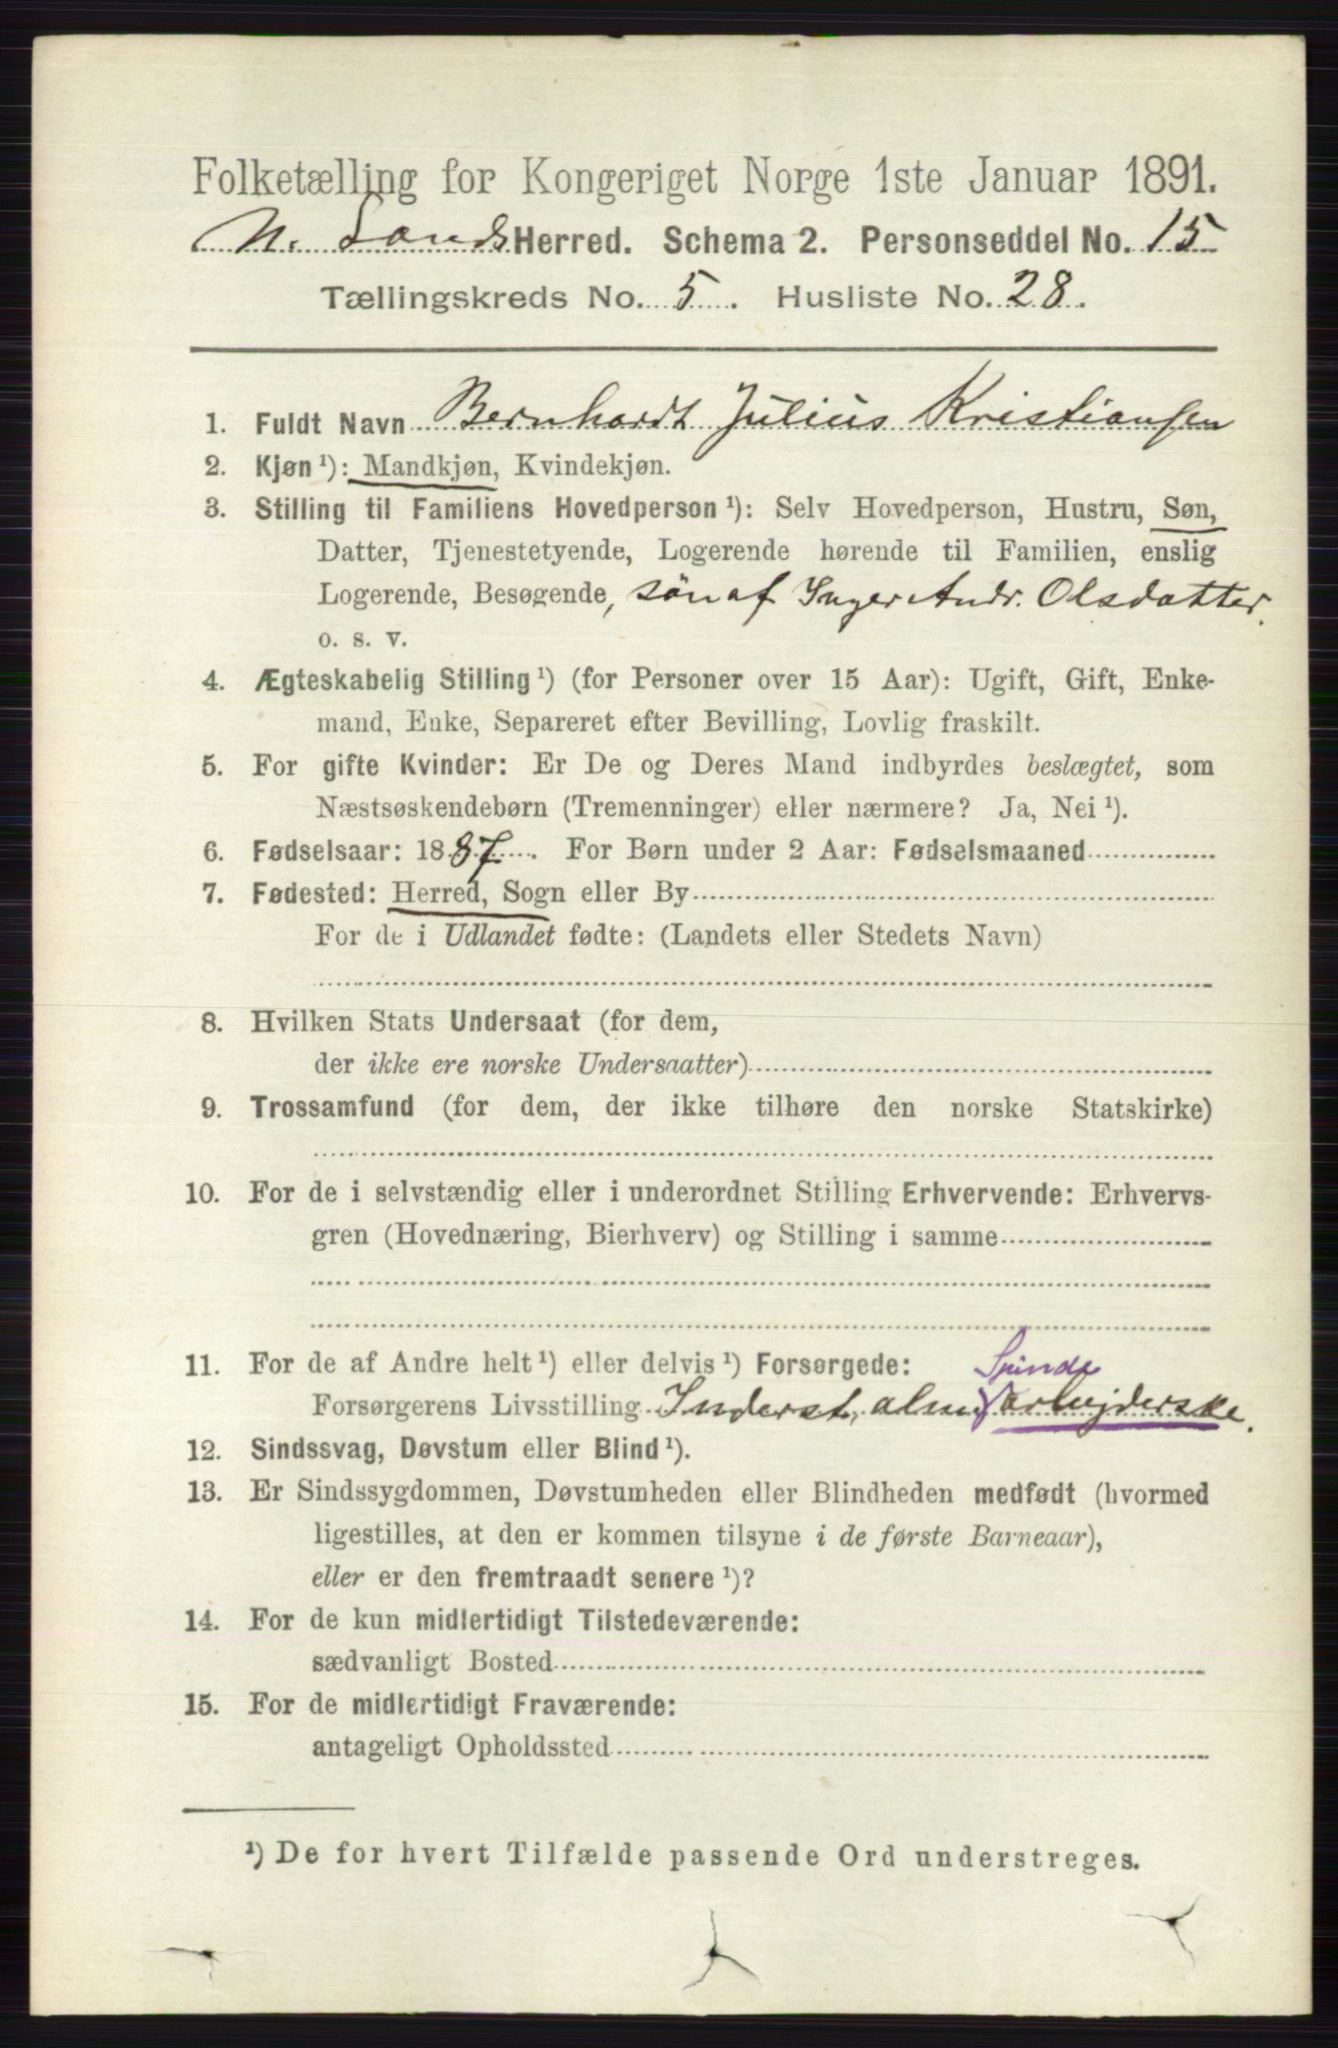 Folketælling for Kongeriget Norge 1ste Januar 1891.
N. Lands Herred. Schema 2. Personseddel No. 15
Tællingskreds No. 5. Husliste No. 28.
1. Fuldt Navn Bernhardt Julius Kristiansen
2. Kjøn ¹): Mandkjøn, Kvindekjøn.
3. Stilling til Familiens Hovedperson ¹): Selv Hovedperson, Hustru, Søn,
Datter, Tjenestetyende, Logerende hørende til Familien, enslig
Logerende, Besøgende, søn af Inger Andr. Olsdatter.
o. s. v.
4. Ægteskabelig Stilling ¹) (for Personer over 15 Aar): Ugift, Gift, Enke-
mand, Enke, Separeret efter Bevilling, Lovlig fraskilt.
5. For gifte Kvinder: Er De og Deres Mand indbyrdes beslægtet, som
Næstsøskendebørn (Tremenninger) eller nærmere? Ja, Nei ¹).
6. Fødselsaar: 1887. For Børn under 2 Aar: Fødselsmaaned
7. Fødested: Herred, Sogn eller By
For de i Udlandet fødte: (Landets eller Stedets Navn)
8. Hvilken Stats Undersaat (for dem,
der ikke ere norske Undersaatter)
9. Trossamfund (for dem, der ikke tilhøre den norske Statskirke)
10. For de i selvstændig eller i underordnet Stilling Erhvervende: Erhvervs-
gren (Hovednæring, Bierhverv) og Stilling i samme
11. For de af Andre helt ¹) eller delvis ¹) Forsørgede:
Forsørgerens Livsstilling Inderst, alm. arbejderske.
12. Sindssvag, Døvstum eller Blind ¹).
13. Er Sindssygdommen, Døvstumheden eller Blindheden medfødt (hvormed
ligestilles, at den er kommen tilsyne i de første Barneaar),
eller er den fremtraadt senere ¹)?
14. For de kun midlertidigt Tilstedeværende:
sædvanligt Bosted
15. For de midlertidigt Fraværende:
antageligt Opholdssted
¹) De for hvert Tilfælde passende Ord understreges.